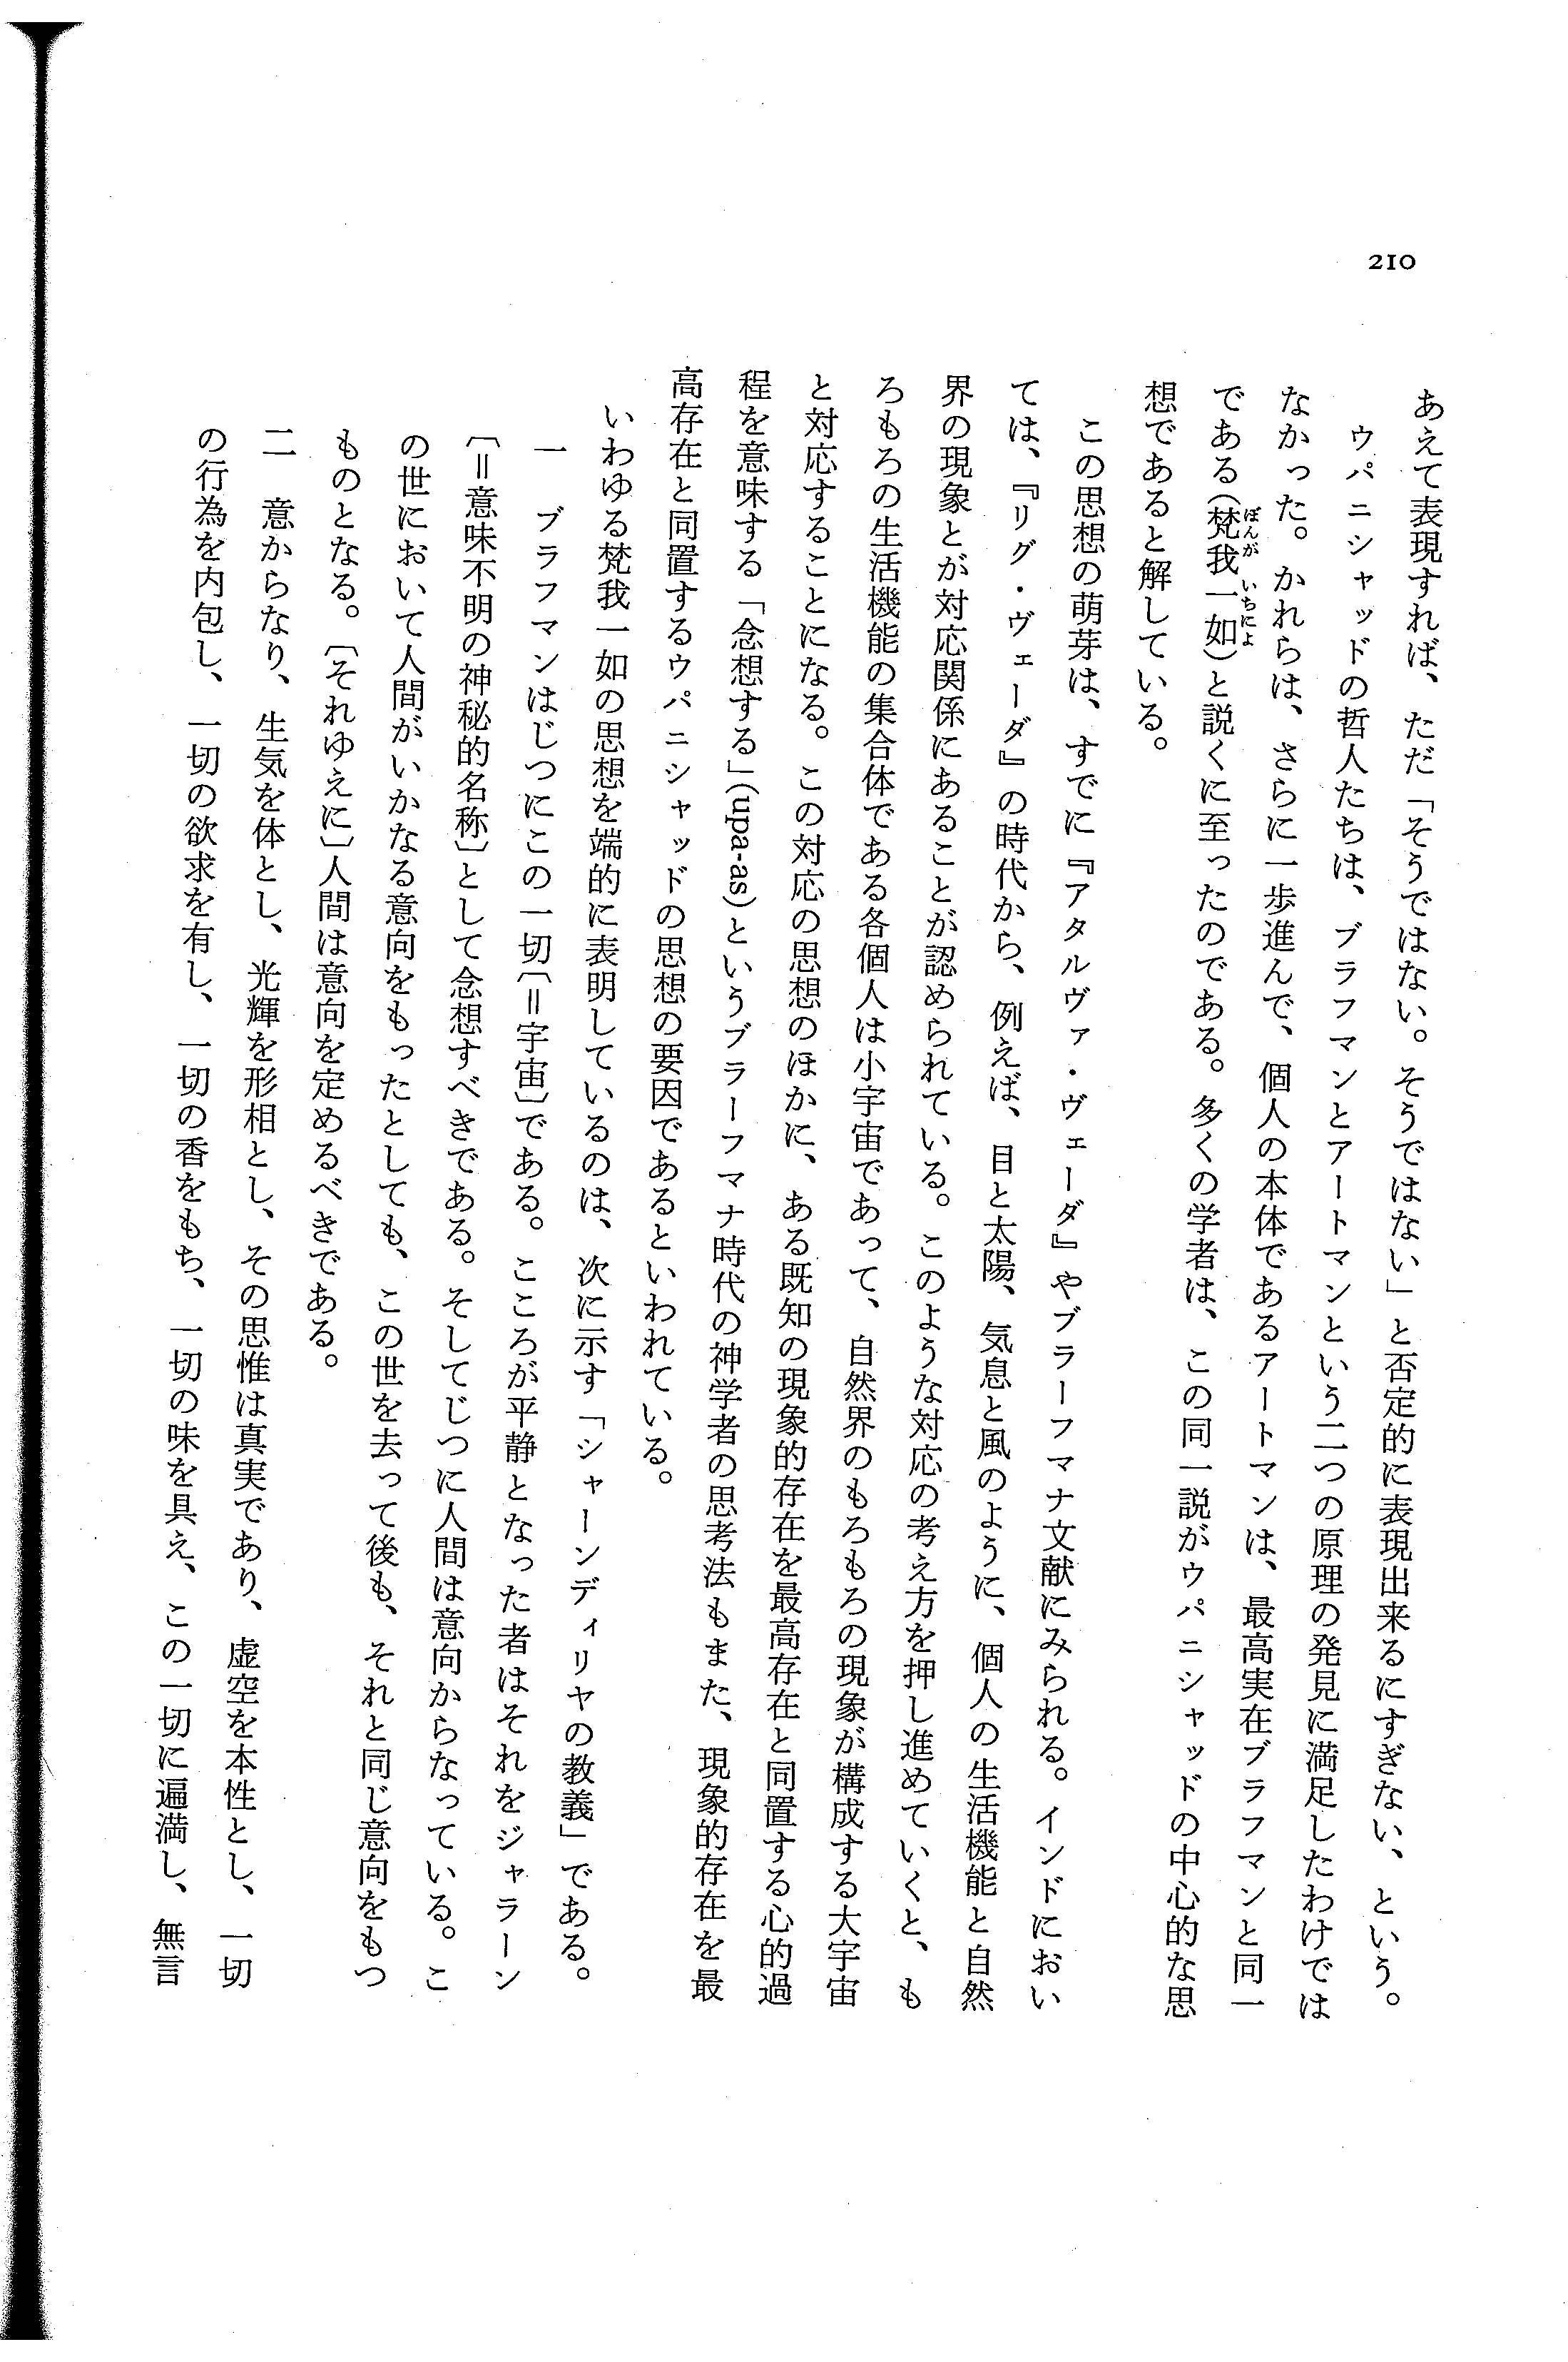 210
あえて表現すれば、ただ「そうではない。そうではない」と否定的に表現出来るにすぎない、という。
ウパニシャッドの哲人たちは、ブラフマンとアートマンという二つの原理の発見に満足したわけでは
なかった。かれらは、さらに一歩進んで、個人の本体であるアートマンは、最高実在ブラフマンと同一
である(梵我一如)と説くに至ったのである。多くの学者は、この同一説がウパニシャッドの中心的な思
ぼんが いちによ
想であると解している。
この思想の萌芽は、すでに『アタルヴァ・ヴェーダ』やブラーフマナ文献にみられる。インドにおい
ては、『リグ・ヴェーダ』の時代から、例えば、目と太陽、気息と風のように、個人の生活機能と自然
界の現象とが対応関係にあることが認められている。このような対応の考え方を押し進めていくと、も
ろもろの生活機能の集合体である各個人は小宇宙であって、自然界のもろもろの現象が構成する大宇宙
と対応することになる。この対応の思想のほかに、ある既知の現象的存在を最高存在と同置する心的過
程を意味する「念想する」(upa-as)というブラーフマナ時代の神学者の思考法もまた、現象的存在を最
高存在と同置するウパニシャッドの思想の要因であるといわれている。
いわゆる梵我一如の思想を端的に表明しているのは、次に示す「シャーンディリヤの教義」である。
一 ブラフマンはじつにこの一切〔=宇宙〕である。こころが平静となった者はそれをジャラーン
〔=意味不明の神秘的名称〕として念想すべきである。そしてじつに人間は意向からなっている。こ
の世において人間がいかなる意向をもったとしても、この世を去って後も、それと同じ意向をもつ
ものとなる。〔それゆえに〕人間は意向を定めるべきである。
二 意からなり、生気を体とし、光輝を形相とし、その思惟は真実であり、虚空を本性とし、一切
の行為を内包し、一切の欲求を有し、一切の香をもち、一切の味を具え、この一切に遍満し、無言